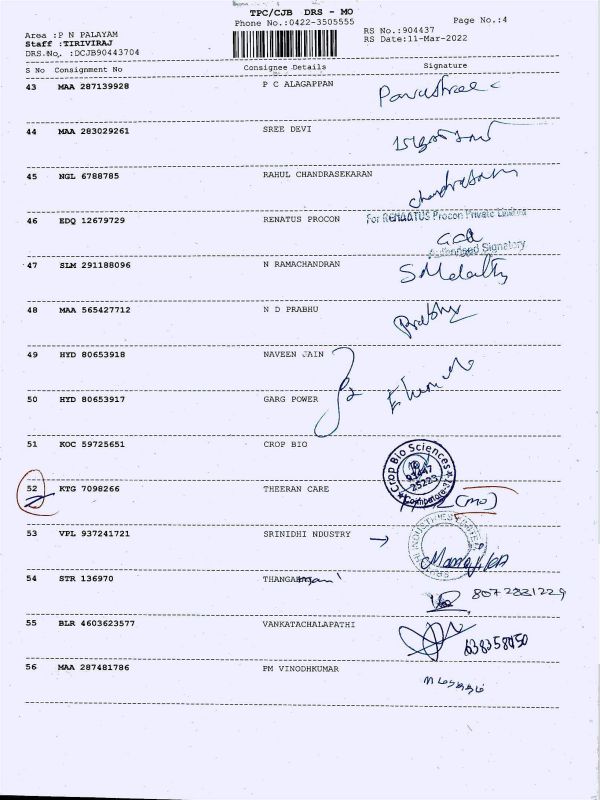 TPC/CJB DRS - MO
Phone No.:0422-3505555
Page No.:4
Area :P N PALAYAM
Staff :TIRIVIRAJ
DRS.No. :DCJB90443704
RS No.:904437
RS Date:11-Mar-2022
S No Consignment No Consignee Details Signature
43 MAA 287139928 P C ALAGAPPAN
44 MAA 283029261 SREE DEVI
45 NGL 6788785 RAHUL CHANDRASEKARAN
46 EDQ 12679729 RENATUS PROCON For RENAATUS Procon Private Limited
Authorised Signatory
47 SLM 291188096 N RAMACHANDRAN
48 MAA 565427712 N D PRABHU Prabhu
49 HYD 80653918 NAVEEN JAIN
50 HYD 80653917 GARG POWER
51 KOC 59725651 CROP BIO Crop Bio Sciences
93447
25223
Coimbatore
52 KTG 7098266 THEERAN CARE (MO)
53 VPL 937241721 SRINIDHI NDUSTRY →
54 STR 136970 THANGA
8072831229
55 BLR 4603623577 VANKATACHALAPATHI
56 MAA 287481786 PM VINODHKUMAR